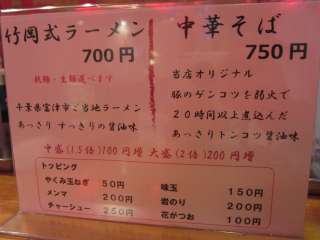 竹岡式ラーメン
700円
乾麺・生麺選べます
千葉県富津市ご当地ラーメン
あっさり すっきりの醤油味
中華そば
750円
当店オリジナル
豚のゲンコツを弱火で
20時間以上煮込んだ
あっさりトンコツ醤油味
中盛(1.5倍)100円増 大盛(2倍)200円増
トッピング
やくみ玉ねぎ 50円
メンマ 200円
チャーシュー 250円
味玉 150円
岩のり 200円
花がつお 100円